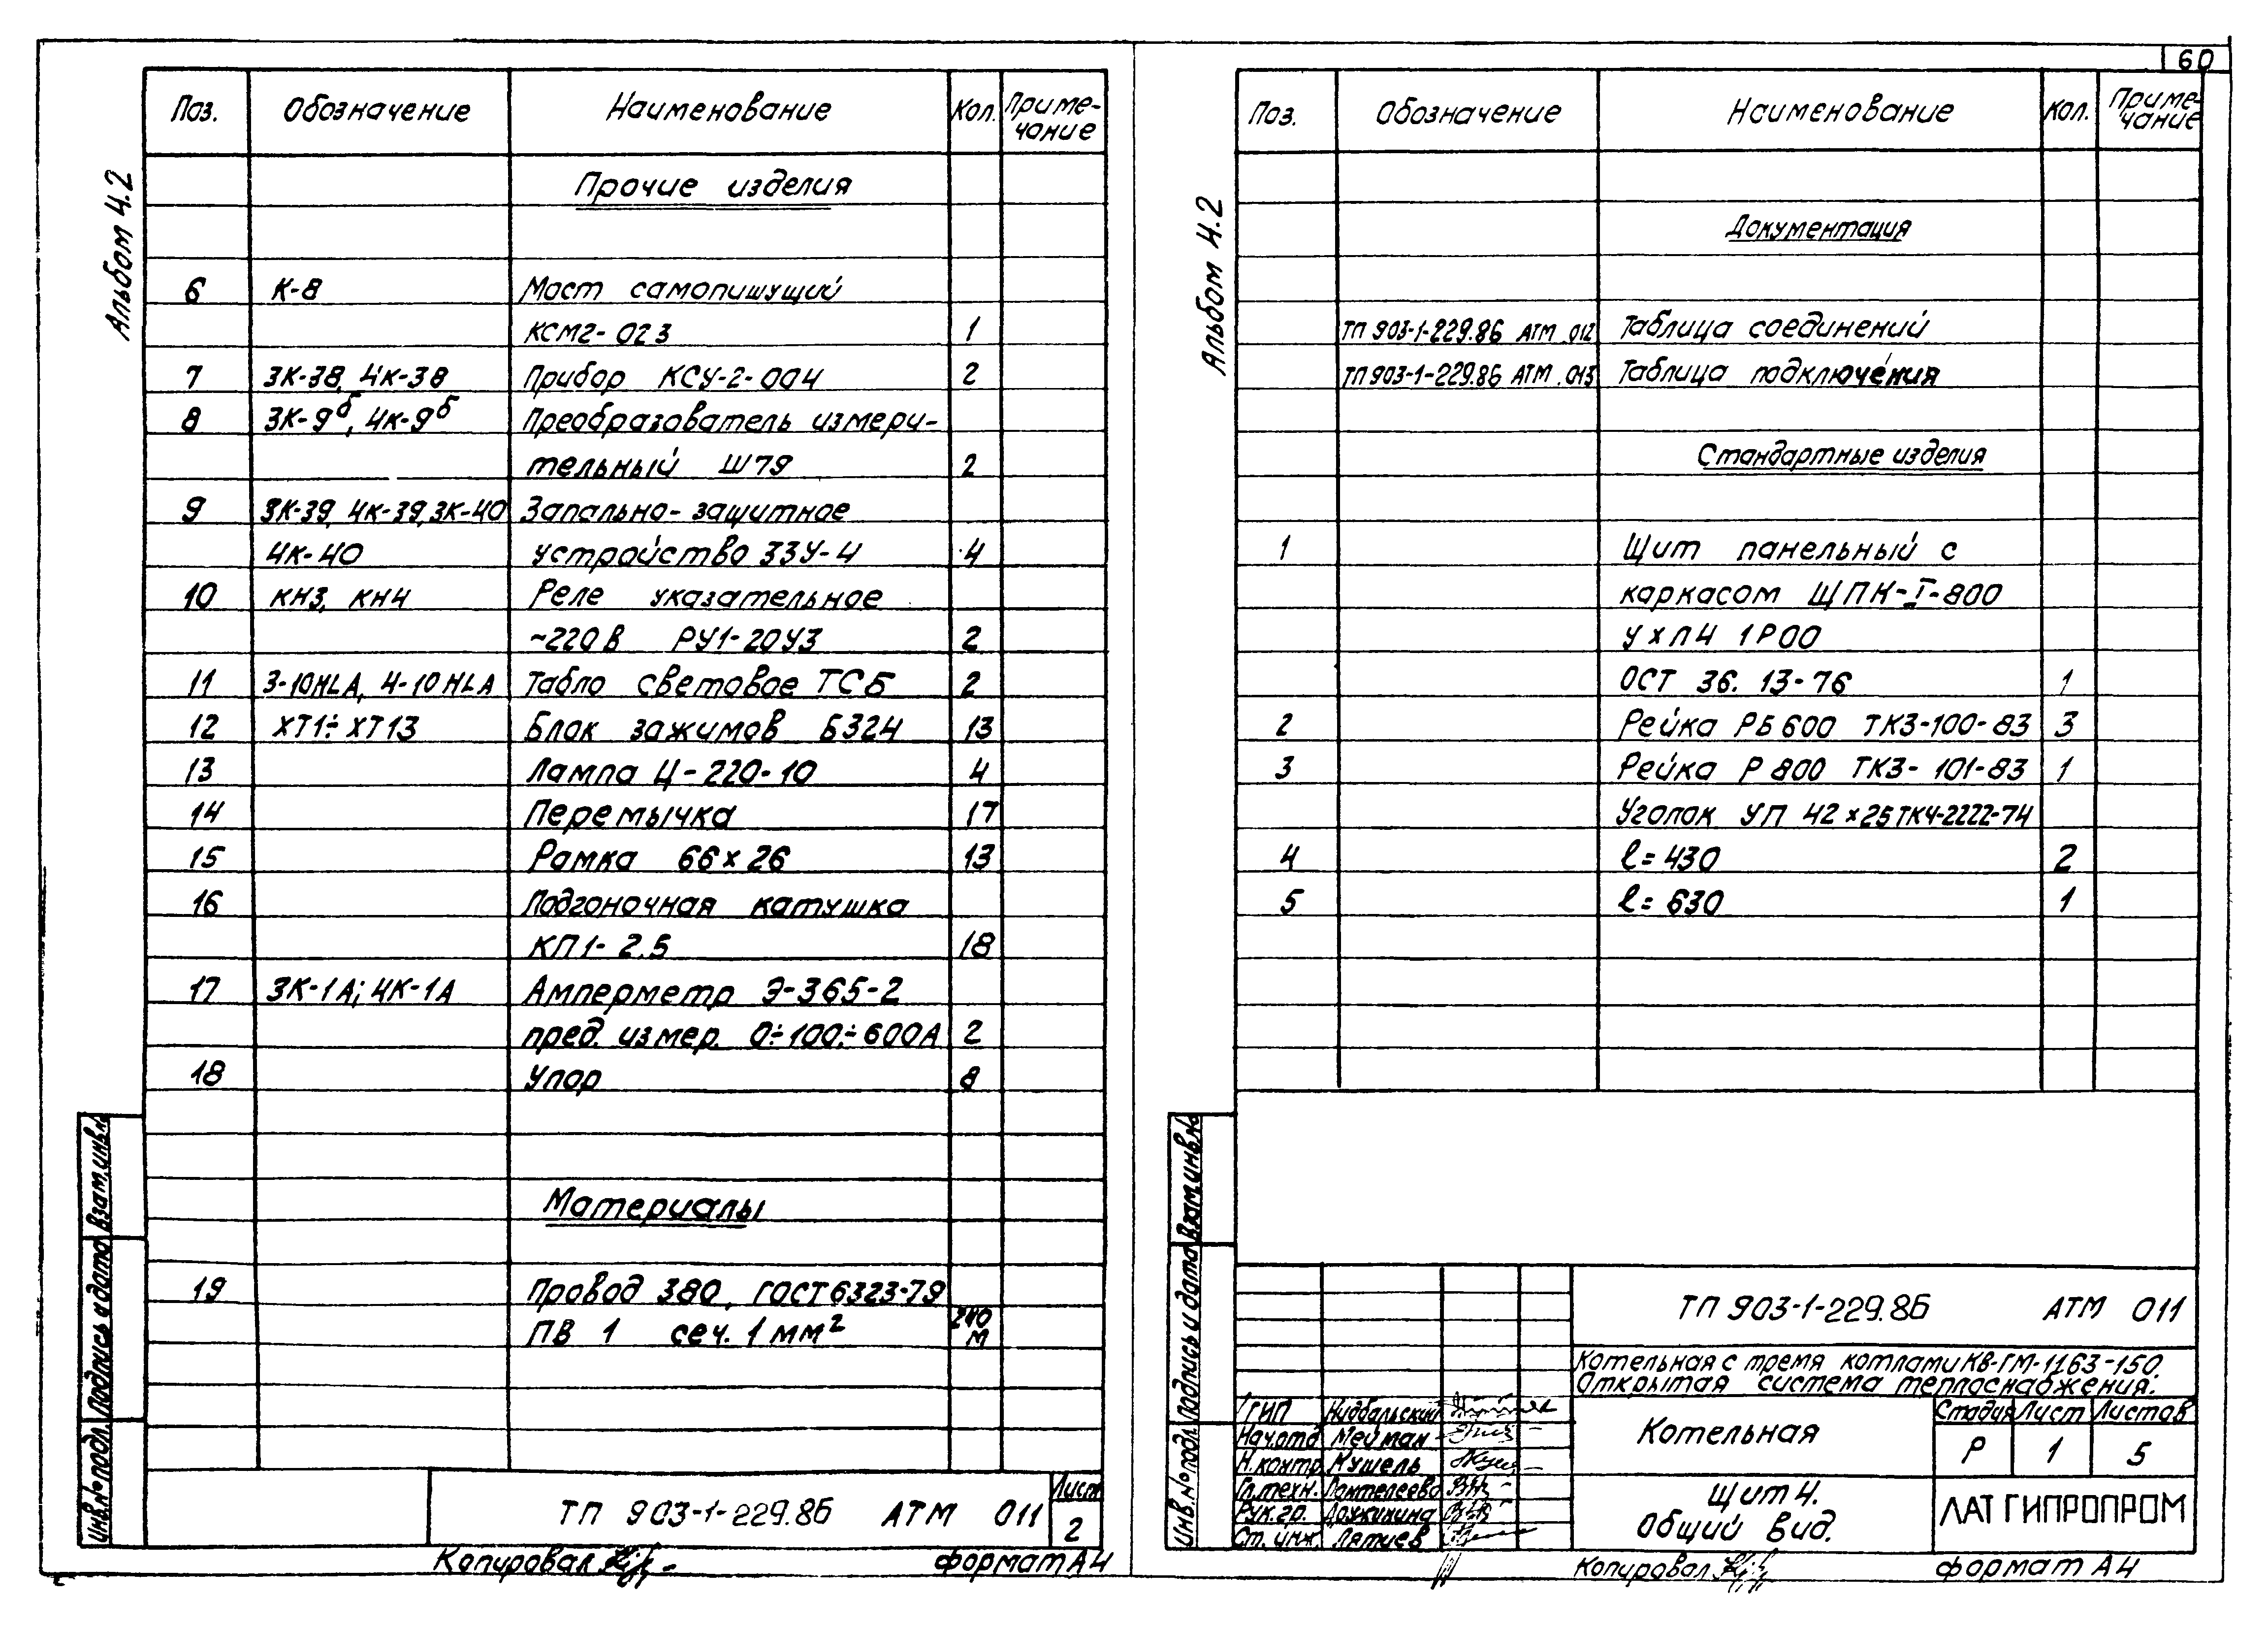 60
Альбом 4.2
Поз. Обозначение Наименование Кол. Приме-
чание
Прочие изделия
6 К-8 Мост самопишущий
КСМ2-023 1
7 3К-38, 4К-38 Прибор КСУ-2-004 2
8 3К-9б, 4К-9б Преобразователь измери-
тельный Ш79 2
9 3К-39, 4К-39, 3К-40 Запально-защитное
4К-40 устройство ЗЗУ-4 4
10 КН3, КН4 Реле указательное
~220В РУ1-20У3 2
11 3-10HLA, 4-10HLA Табло световое ТСБ 2
12 ХТ1÷ХТ13 Блок зажимов Б324 13
13 Лампа Ц-220-10 4
14 Перемычка 17
15 Рамка 66х26 13
16 Подгоночная катушка
КП1-2.5 18
17 3К-1А; 4К-1А Амперметр Э-365-2
пред. измер. 0÷100÷600А 2
18 Упор 8
Материалы
19 Провод 380, ГОСТ 6323-79
ПВ 1 сеч. 1 мм² 240
м
Взам.инв.№
Подпись и дата
Инв.№ подл.
ТП 903-1-229.86 АТМ 011
Лист
2
Копировал
формат А4
Альбом 4.2
Поз. Обозначение Наименование Кол. Приме-
чание
Документация
ТП 903-1-229.86 АТМ .012 Таблица соединений
ТП 903-1-229.86 АТМ .013 Таблица подключения
Стандартные изделия
1 Щит панельный с
каркасом ЩПК-I-800
УХЛ4 1Р00
ОСТ 36.13-76 1
2 Рейка РБ600 ТК3-100-83 3
3 Рейка Р800 ТК3-101-83 1
Уголок УП 42х25 ТК4-2222-74
4 l=430 2
5 l=630 1
Взам.инв.№
Подпись и дата
Инв.№ подл.
ТП 903-1-229.86 АТМ 011
Котельная с тремя котлами КВ-ГМ-11.63-150.
Открытая система теплоснабжения.
ГИП Нидбальский
Нач.отд Мейман
Н.контр Кушель
Гл.техн. Пантелеева
Рук.гр.
Ст. инж.
Котельная
Стадия Лист Листов
Р 1 5
Щит 4.
Общий вид.
ЛАТГИПРОПРОМ
Копировал
формат А4